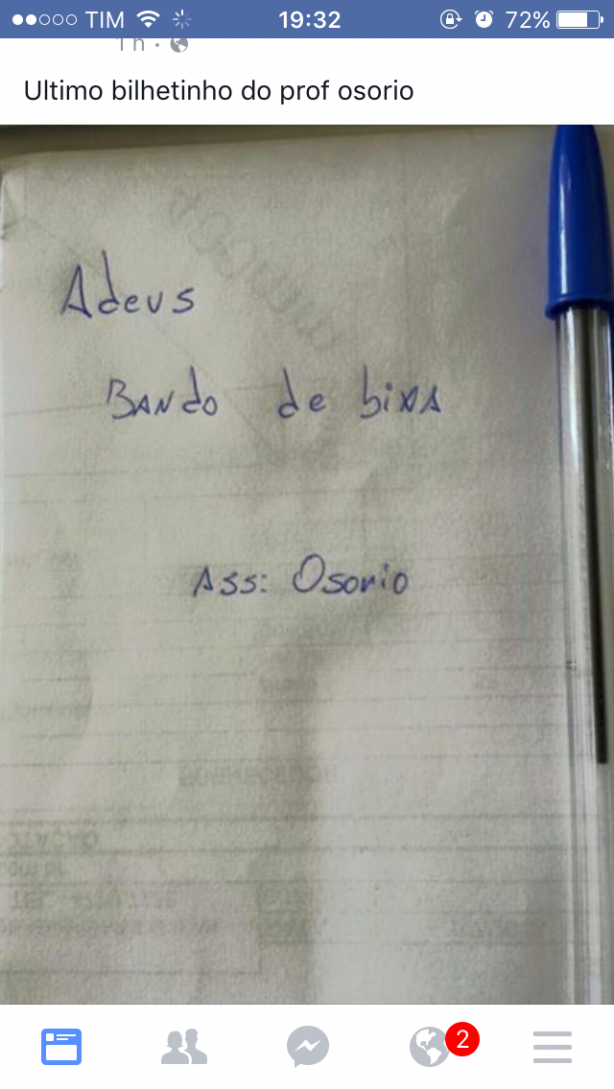 TIM 19:32 72%
1 h
Ultimo bilhetinho do prof osorio
Adeus
BANdo de bixA
Ass: Osorio
2